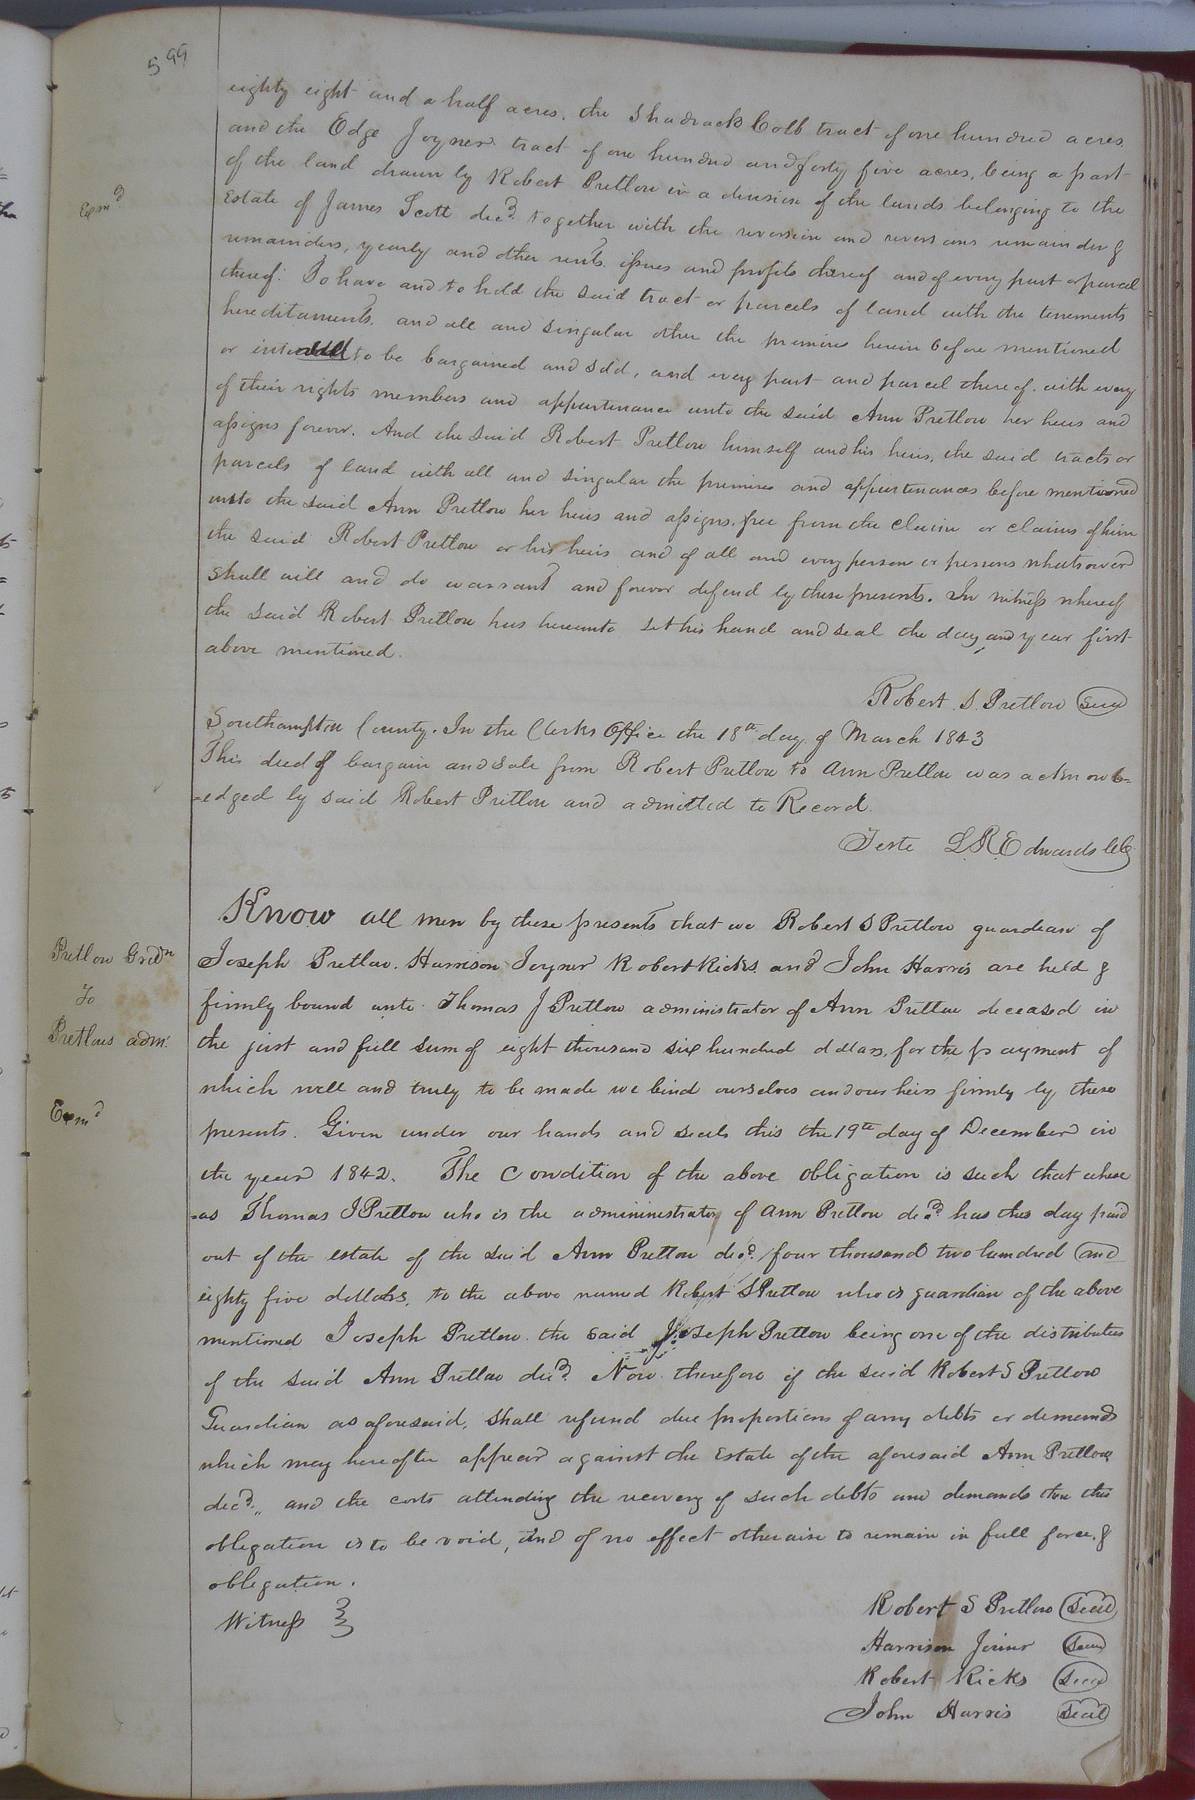 599
eighty eight and a half acres. the Shadrack Cobb tract of one hundred acres
and the Edge Joyner tract of one hundred and forty five acres, being a part
of the land drawn by Robert Pretlow in a devision of the lands belonging to the
Exmd
Estate of James Scott decd together with the reversion and reversions remainder &
remainders, yearly and other rents issues and profits thereof and of every part or parcel
thereof. To have and to hold the said tract or parcels of land with the tenements
hereditaments, and all and singular other the premises herein before mentioned
or to be bargained and sold, and every part and parcel thereof with every
of their rights members and appurtenance unto the said Ann Pretlow her heirs and
assigns forever. And the said Robert Pretlow himself and his heirs, the said tracts or
parcels of land with all and singular the premises and appurtenances before mentioned
unto the said Ann Pretlow her heirs and assigns, free from the claim or claims of him
the said Robert Pretlow or his heirs and of all and every person or persons whatsoever
shall will and do warrant and forever defend by these presents. In witness whereof
the said Robert Pretlow has hereunto set his hand and seal the day and year first
above mentioned.
Robert S. Pretlow Seal
Southampton County. In the Clerks Office the 18th day of March 1843
This deed of bargain and sale from Robert Pretlow to Ann Pretlow was acknowl-
-edged by said Robert Pretlow and admitted to Record.
Teste L. R. Edwards Clk
Know all men by these presents that we Robert S Pretlow guardian of
Pretlow Gredn
To
Pretlows adm.
Joseph Pretlow. Harrison Joyner Robert Ricks and John Harris are held &
firmly bound unto Thomas J Pretlow administrator of Ann Pretlow deceased in
the just and full sum of eight thousand six hundred dollars, for the payment of
which well and truly to be made we bind ourselves and our heirs firmly by these
Exmd
presents. Given under our hands and seals this the 19th day of December in
the year 1842. The Condition of the above obligation is such that where
-as Thomas J Pretlow who is the admininistrator of Ann Pretlow decd has this day paid
out of the estate of the said Ann Pretlow decd. four thousand two hundred and
eighty five dollars, to the above named Robert S Pretlow who is guardian of the above
mentioned Joseph Pretlow. the said Joseph Pretlow being one of the distributees
of the said Ann Pretlow decd. Now therefore if the said Robert S Pretlow
Guardian as aforesaid, shall refund due proportions of any debts or demands
which may hereafter appear against the Estate of the aforesaid Ann Pretlow
decd., and the costs attending the recovery of such debts and demands then this
obligation is to be void, and of no effect otherwise to remain in full force &
obligation.
Witness
Robert S Pretlow Seal
Harrison Joiner Seal
Robert Ricks Seal
John Harris Seal